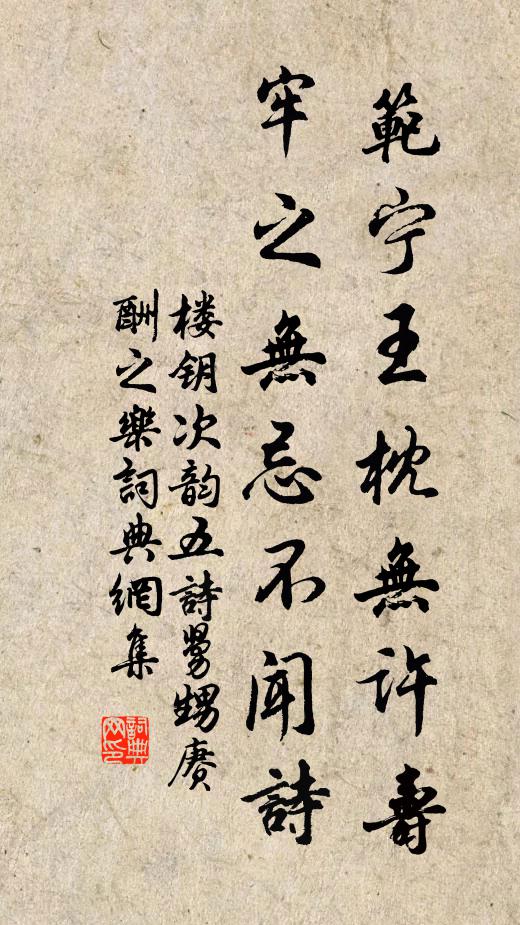 範宁王枕無許壽
牢之無忌不闻詩
楼钥次韵五詩舅甥赓
酬之樂詞典網集
詞典网印